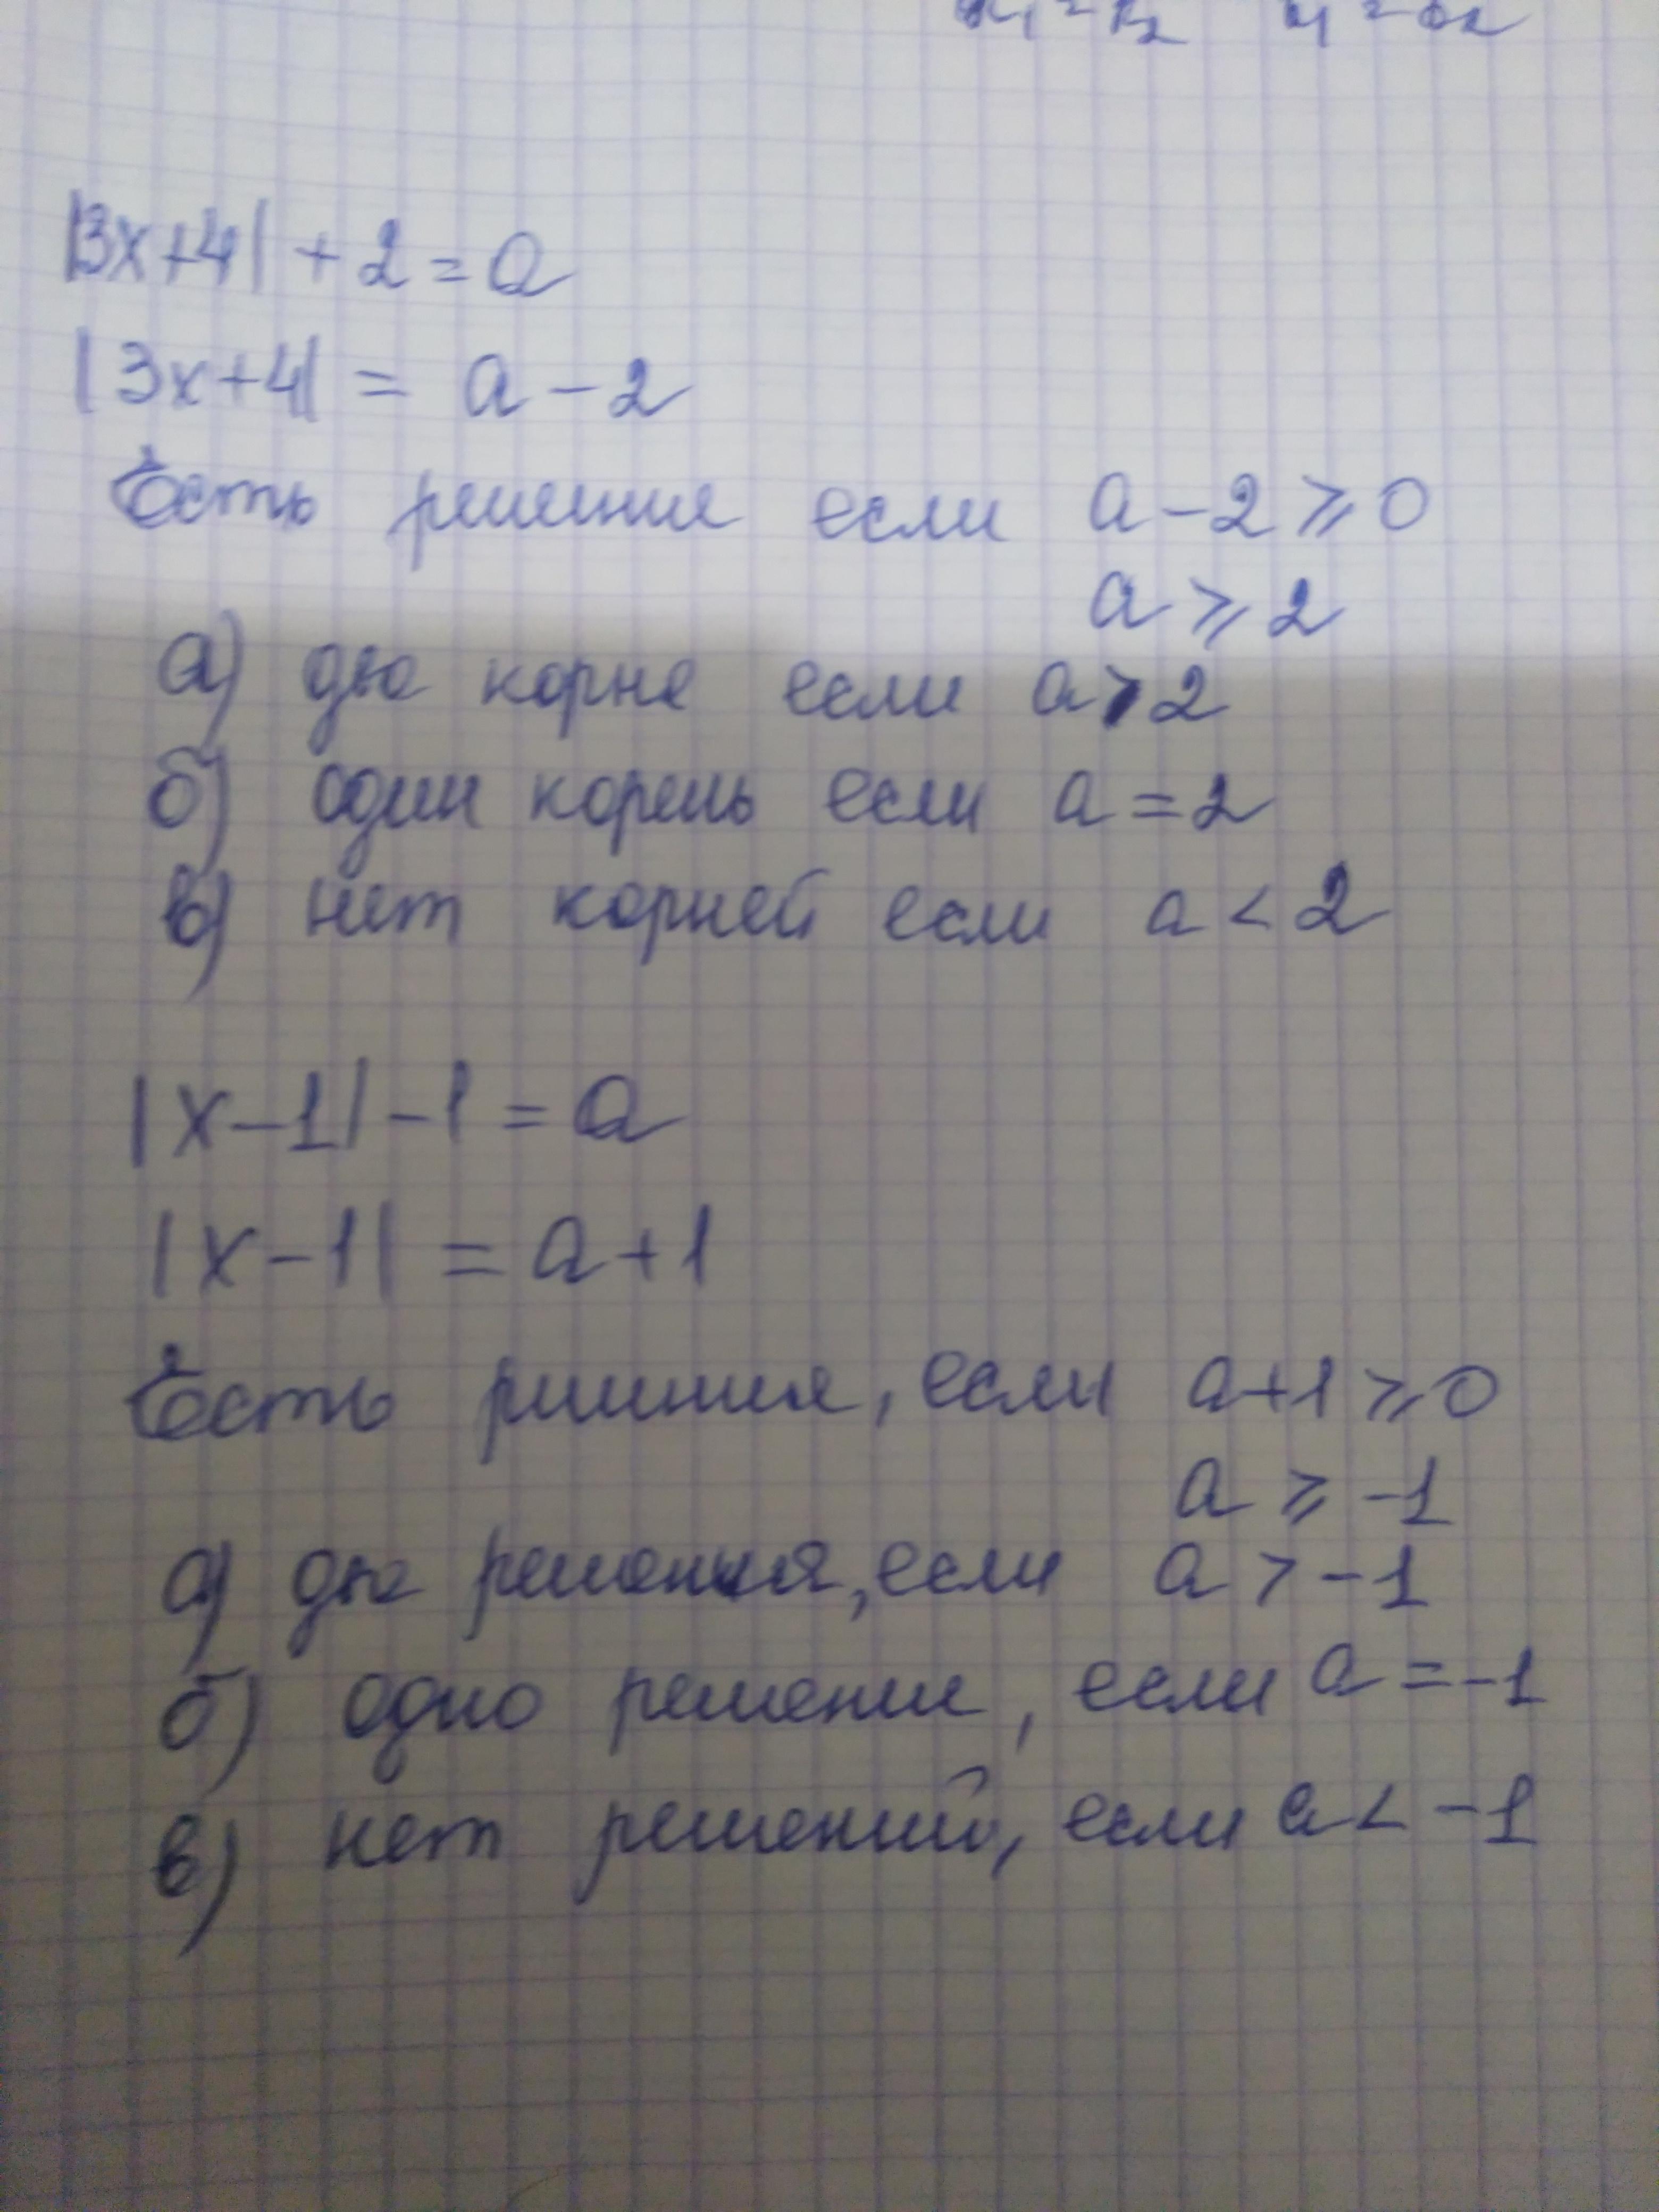 |3x+4| + 2 = a
|3x+4| = a - 2
Есть решение если a - 2 ⩾ 0
a ⩾ 2
а) два корне если a > 2
б) один корень если a = 2
в) нет корней если a < 2
|x-1| - 1 = a
|x-1| = a + 1
Есть решения, если a+1 ⩾ 0
a ⩾ -1
а) два решения, если a > -1
б) одно решение, если a = -1
в) нет решений, если a < -1